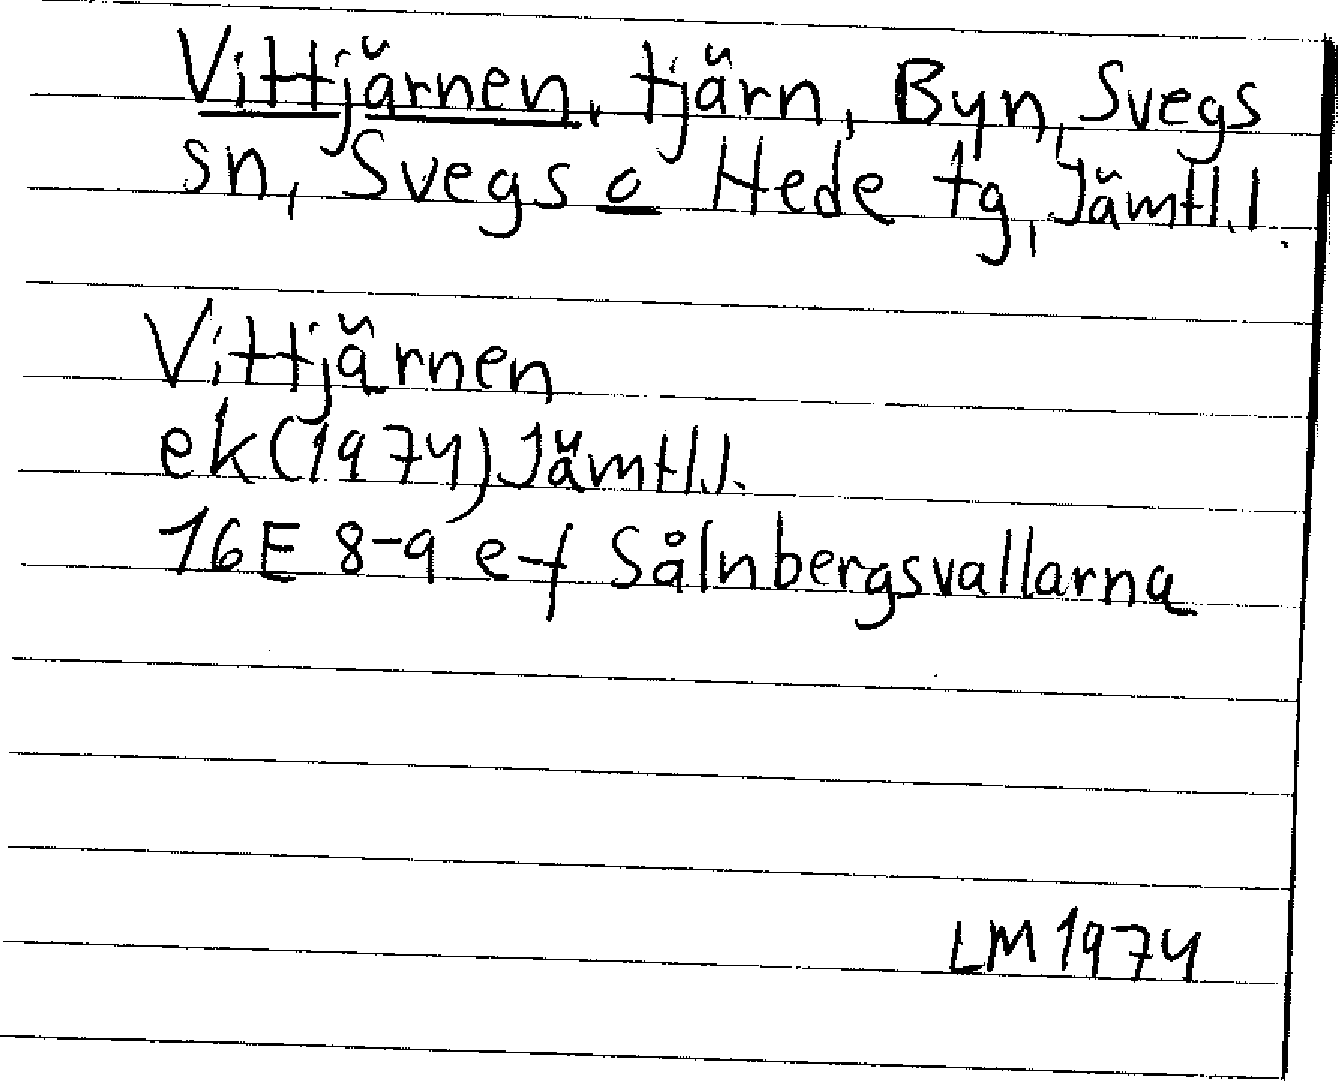 Vittjärnen, tjärn, Byn, Svegs
sn, Svegs o Hede tg, Jämtl. l.
Vittjärnen
ek (1974) Jämtl. l.
16E 8-9 e-f Sålnbergsvallarna
LM 1974